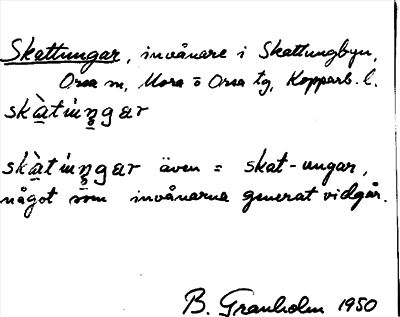 Skattungar, invånare i Skattungbyn,
Orsa sn, Mora o Orsa tg, Kopparb. l.
skàtiŋgar
skàtiŋgar även = skat-ungar,
något som invånarna generat vidgår.
B. Granholm 1950